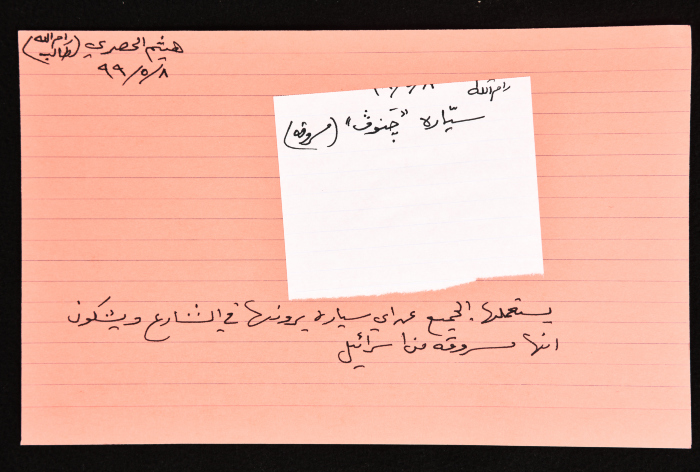 هيثم الحصري (رام الله
طالب)
٩٩/٥/٨
رام الله
سيّاره "چَنوڤ" (مسروقه)
يستعملها الجميع عن اي سياره يرونها في الشارع ويشكون
انها مسروقه من اسرائيل